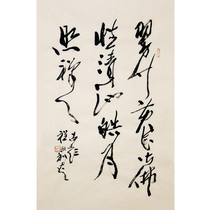 翠竹黄花皆佛
性清池皓月
照禅心